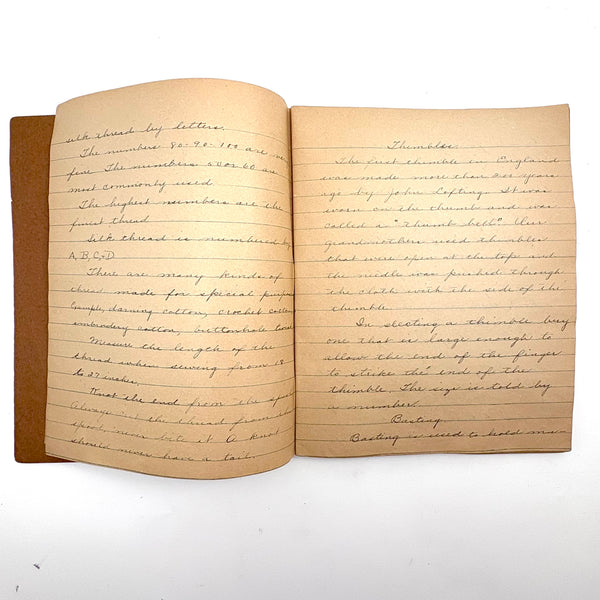 silk thread by letters.
The numbers 80-90-100 are very
fine The numbers 50 or 60 are
most commonly used.
The highest numbers are the
finest thread
Silk thread is numbered by
A, B, C, + D
There are many kinds of
thread made for special purpose
Example, darning cotton, crochet cotton
embrodery cotton, buttonhole
Measure the length of the
thread when sewing from 18
to 27 inches.
Knot the end from the spool
Always cut the thread from the
spool, never bite it A knot
should never have a tail.
Thimbles.
The first thimble in England
was made more than 200 years
ago by John Lofting. It was
worn on the thumb and was
called a "thumb bell". Our
grandmothers used thimbles
that were open at the tope and
the niddle was pushed through
the cloth with the side of the
thimble.
In slecting a thimble buy
one that is large enough to
allow the end of the finger
to strike the end of the
thimble. The size is told by
a number.
Basting.
Basting is used to hold ma-